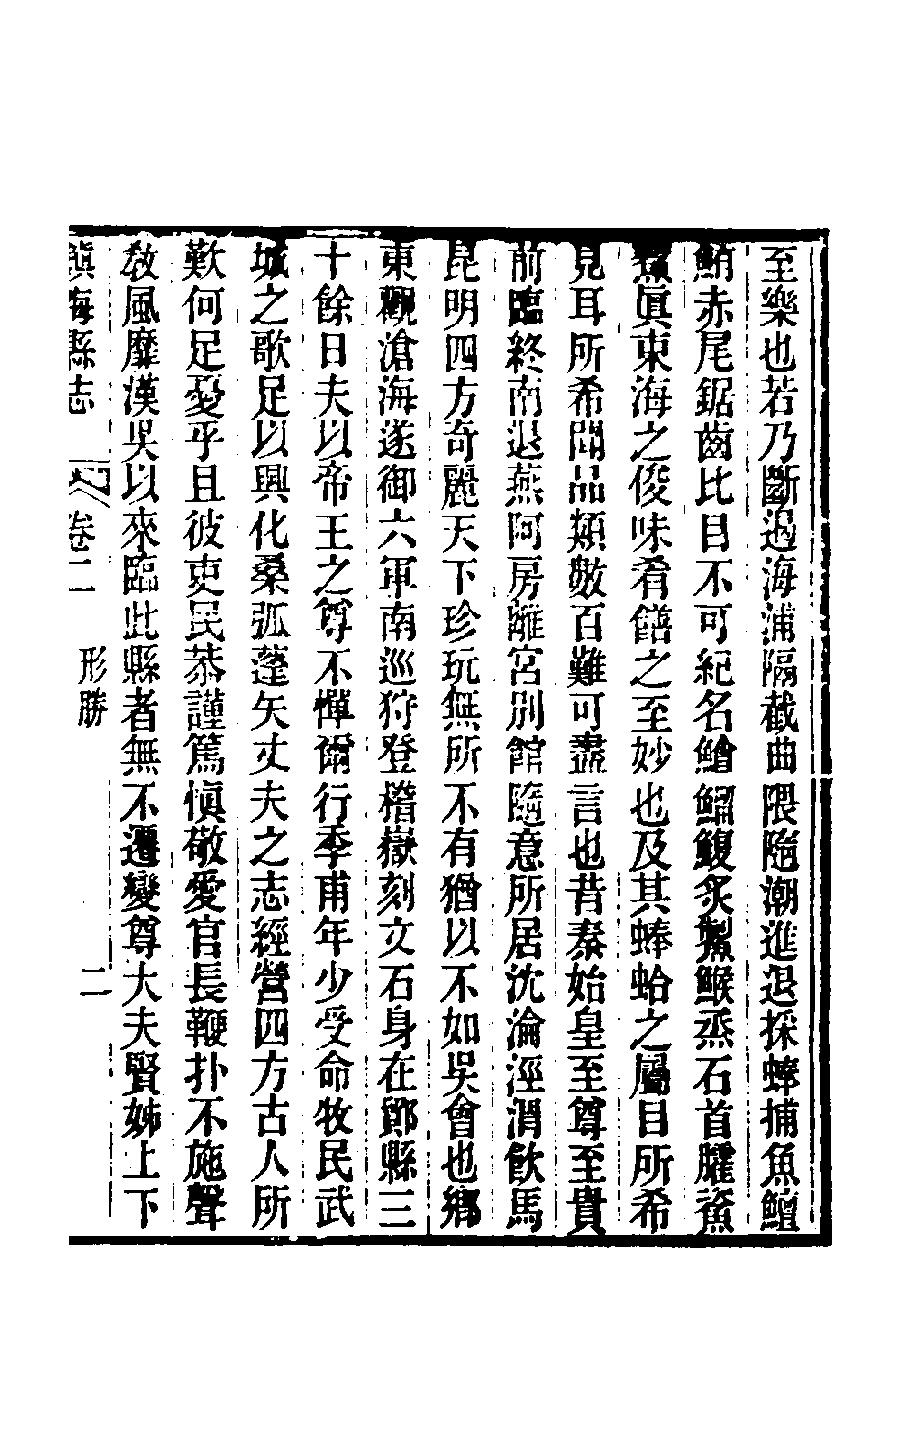 至樂也若乃斷遏海浦隔截曲隈隨潮進退採蜯捕魚鱣
鮪赤尾鋸齒比目不可紀名鱠鰡鰒炙鯯鯸烝石首臛䰼
鮝眞東海之俊味肴饍之至妙也及其蜯蛤之屬目所希
見耳所希聞品類數百難可盡言也昔秦始皇至尊至貴
前臨終南退燕阿房離宮別館隨意所居沈淪涇渭飮馬
昆明四方奇麗天下珍玩無所不有猶以不如吳會也鄉
東觀滄海遂御六軍南巡狩登稽嶽刻文石身在鄮縣三
十餘日夫以帝王之尊不憚爾行季甫年少受命牧民武
城之歌足以興化桑弧蓬矢丈夫之志經營四方古人所
歎何足憂乎且彼吏民恭謹篤愼敬愛官長鞭扑不施聲
敎風靡漢吳以來臨此縣者無不遷變尊大夫賢姊上下
鎭海縣志 卷二 形勝 二